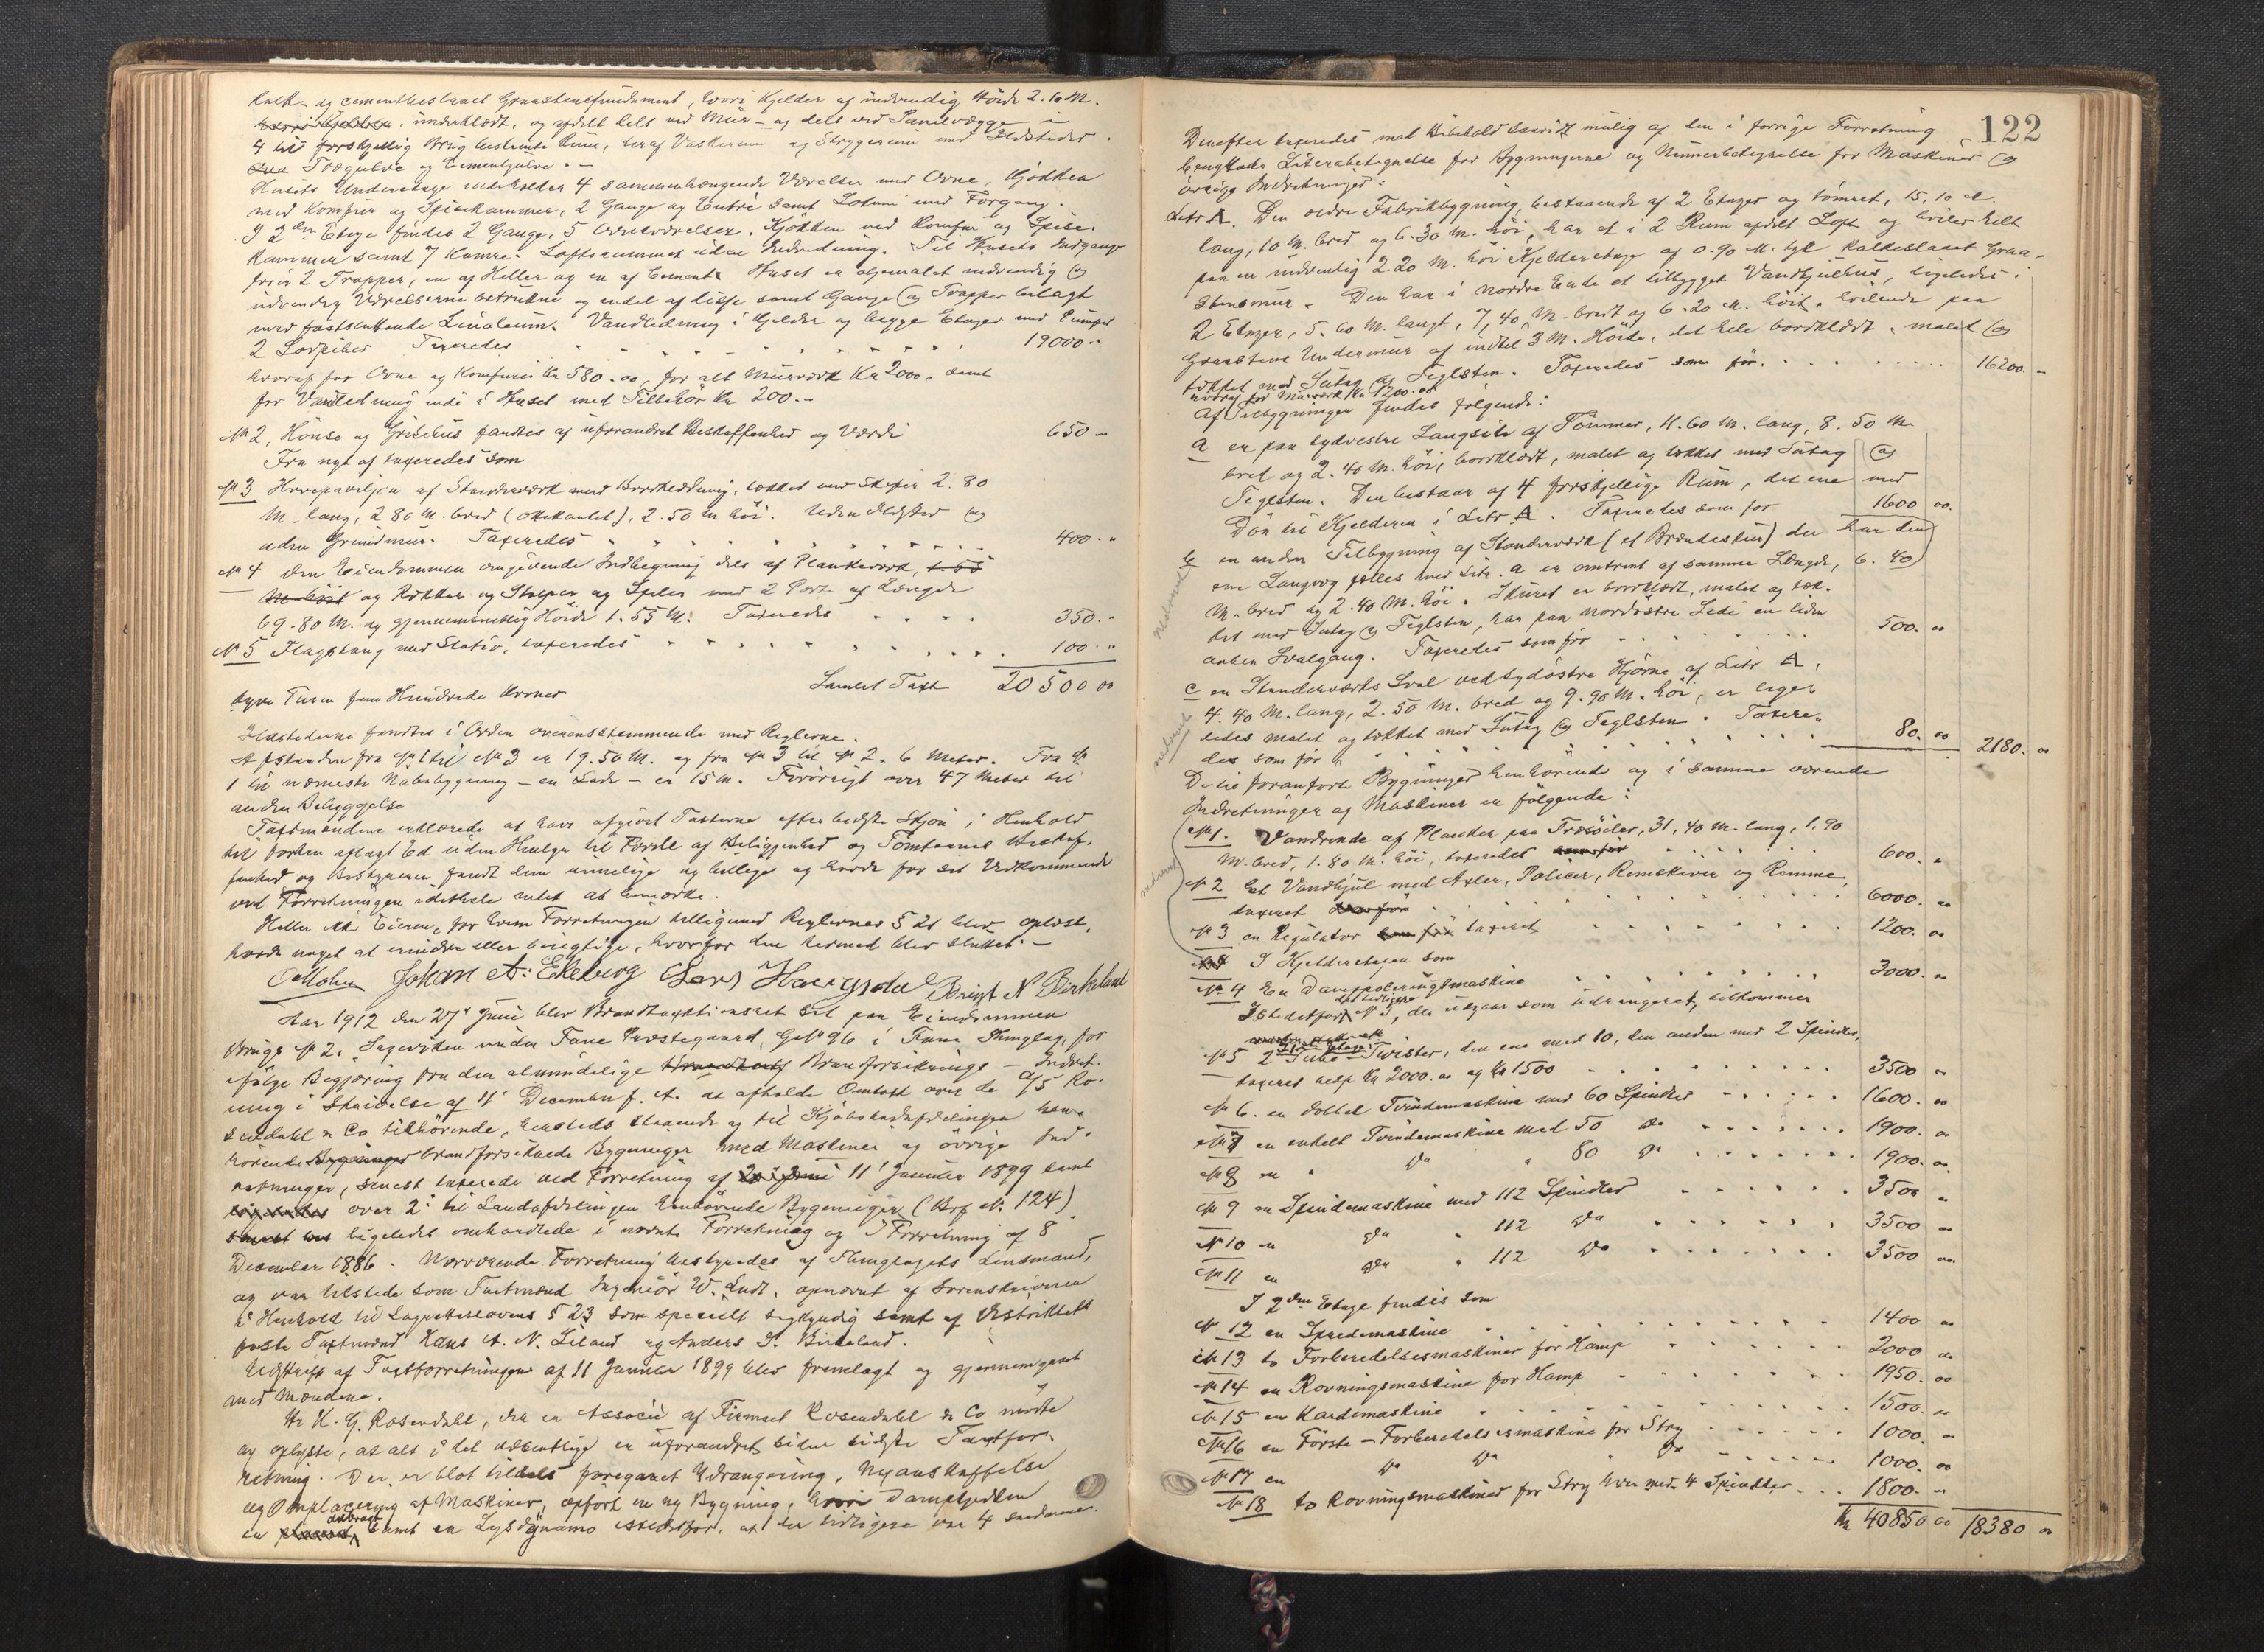 Kalk- og cementbeslaaet Graastensfundament, hvori Kjelder af indvendig Høide 2.10 M.
underklædt, og afdelt dels ved Mur- og dels ved Panelvægge i
4 til forskjellig Brug bestemte Rum, heraf Vaskerum og Strygerum med Ildsteder.
Trægulve og Cementgulve. -
Husets Underetage indeholder 4 sammenhængende Værelser med Ovne, Kjøkken
med Komfur og Spisekammer, 2 Gange og Entré samt Lokum med Forgang.
I 2den Etage findes 2 Gange, 5 Værelser, Kjøkken med Komfur og Spise-
kammer samt 7 Kamre. Loftsrummet uden Indredning. Til Husets Indgange
fører 2 Trapper, en af Heller og en af Cement. Huset er oljemalet indvendig og
udvendig Værelserne betrukne og endel af disse samt Gange og Trapper belagt
med fastsittende Linoleum. Vandledning i Kjelder og begge Etager med Pumper
2 Lodpiber Taxeredes 19000 "
hvoraf for Ovne og Komfurer Kr 580.00, for alt Murværk Kr 2000. samt
for Vandledning inde i Huset med Tilbehør Kr 200.-
No 2, Hønse og Grisehus fandtes af uforandret Beskaffenhed og Værdi 650 -
Fra nyt af taxeredes som
No 3 Havepaviljon af Standerværk med Bordklædning, tækket med Skifer 2.80
M. lang, 2.80 M. bred (ottekantet), 2.50 M høi. Uden Ildsted og
uden Grundmur. Taxeredes 400. "
No 4 den Eiendommen omgivende Indhegning dels af Plankeværk, 1.55
M høit og Rækker og Stolper og Speler med 2 Porte af Længde
69.80 M. og gjennemsnitlig Høide 1.55 M. Taxeredes 350. -
No 5 Flagstang med Stativ, taxeredes 100. "
Samlet Taxt 20500 00
tyve Tusen fem Hundrede Kroner
Ildstederne fandtes i Orden overensstemmende med Reglerne.
Afstanden fra No 1 til No 3 er 19.50 M. og fra No 3 til No 2. 6 Meter. Fra No
1 til nærmeste Nabobygning - en Lade - er 15 M. Forøvrigt over 47 Meter til
anden Bebyggelse
Taxtmændene erklærede at have afgivet Taxterne efter bedste Skjøn i Henhold
til forhen aflagt Ed uden Hensyn til Fordele af Beliggenhed og Tomternes Beskaf-
fenhed og Bestyreren fandt dem rimelige og billige og havde for sit Vedkommende
ved Forretningen idethele intet at bemærke.
Heller ikke Eieren, for hvem Forretningen tilligemed Reglernes § 21 blev oplæst,
havde noget at erindre eller berigtige, hvorfor den hermed blev sluttet. -
O Mohn Johan A. Ekeberg Lars Haugsdal Brigt N Birkeland
Aar 1912 den 27de Juni blev Brandtaxtionsret sat paa Eiendommen
Brugs No 2, Sagevikken under Fane Præstegaard, G.No 96 i Fana Thinglag, for
ifølge Begjæring fra den almindelige Brandforsikrings - Indret-
ning i Skrivelse af 11 December f. A. at afholde Omtaxt over de A/S Ro-
sendahl & Co tilhørende, hersteds staaende og til Kjøbstadafdelingen hen-
hørende Bygninger brandforsikrede Bygninger med Maskiner og øvrige Ind-
retninger, senest taxerede ved Forretning af 11 Januar 1899 samt
over 2 til Landafdelingen henhørende Bygninger (Brf No. 124)
ligeledes omhandlede i nævnte Forretning og i Forretning af 8
December 1886. Nærværende Forretning bestyredes af Thinglagets Lensmand,
og var tilstede som Taxtmænd Ingeniør W. Lindt, opnævnt af Sorenskriveren
i Henhold til Lagrettelovens § 23 som specielt sagkyndig samt af Distriktets
faste Taxtmænd Hans A. N. Liland og Anders I. Birkeland.
Udskrift af Taxtforretningen af 11 Januar 1899 blev fremlagt og gjennemgaaet
med Mændene.
Hr H. G. Rosendahl, der er Associé af Firmaet Rosendahl & Co mødte
og oplyste, at alt i det væsentlige er uforandret siden sidste Taxtfor-
retning. Der er blot tildels foregaaet Udrangering, Nyanskaffelse
og Omplacering af Maskiner, opført en ny Bygning, hvori Dampkjedlen
er anbragt samt en Lysdynamo istedetfor, at der tidligere var 4 saadanne.
122
Derefter taxeredes med Bibehold saavidt mulig af den i forrige Forretning
benyttede Literabetegnelse for Bygningerne og Numerbetegnelse for Maskiner og
øvrige Indretninger:
Litr A. Den øvre Fabrikbygning, bestaaende af 2 Etager og tømret, 15.10 M.
lang, 10 M. bred og 6.30 M. høi, har et i 2 Rum afdelt Loft og hviler helt
paa en indvendig 2.20 M. høi Kjelderetage af 0.90 M. tyk kalkeslaaet Graa-
stensmur. Den har i nordre Ende et tilbygget Vandhjulhus, ligeledes i
2 Etager, 5.60 M. langt, 7,40 M. bredt og 6.20 M. høit, hvilende paa
Graastens Undermur af indtil 3 M. Høide, det hele bordklædt, malet og
tækket med Sutag og Teglsten. Taxeredes som før 16200. -
hvoraf for Murværk Kr 1200.00
Af Tilbygninger findes følgende:
a en paa sydvestre Langside af Tømmer, 11.60 M. lang, 8.50 M
bred og 2.40 M. høi, bordklædt, malet og tækket med Sutag og
Teglsten. Den bestaar af 4 forskjellige Rum, det ene med
Dør til Kjelderen i Litr A. Taxeredes som før 1600 00.
b en anden Tilbygning af Standerværk (et Brændeskur) der har den
ene Langvæg fælles med Litr. a er omtrent af samme Længde, 6.40
M. bred og 2.40 M. høi. Skuret er bordklædt, malet og tæk-
ket med Sutag og Teglsten, har paa nordøstre Side en liden
aaben Svalgang. Taxeredes som før 500. 00
c en Standerværks Sval ved sydøstre Hjørne af Litr A,
4.40 M. lang, 2.50 M. bred og 7.90 M. høi, er lige-
ledes malet og tækket med Sutag og Teglsten. Taxere-
des som før 80. 00 2180. 00
De til foranførte Bygninger henhørende og i samme værende
Indretninger og Maskiner er følgende:
No 1. Vandrende af Planker paa Træsøiler, 31,40 M. lang, 1.90
M. bred, 1.80 M. høi, taxeredes som før 600. "
No 2 Et Vandhjul med Axler, Policer, Remskiver og Remme,
taxeret som før 6000. 00
No 3 en Regulator som før taxeret 1200. 00
I Kjelderetagen som
No 4 En Damppoleringsmaskine 3000. "
Istedetfor det tidligere No 5, der udgaar som udrangeret, tilkommer
No 5 2 Tube-Twister, den ene med 10, den anden med 2 Spindler,
taxeret resp Kr 2000.00 og Kr 1500 3500 "
No 6. en dobbel Tvindemaskine med 60 Spindler 1600. 00
No 7 en enkelt Tvindemaskine med 50 do 1900. 00
No 8 en " do " 80 do 1900. 00
No 9 en Spindemaskine med 112 Spindler 3500 "
No 10 en do " 112 do 3500 00
No 11 en do " 112 do 3500 00
I 2den Etage findes som
No 12 en Spredemaskine 1400 00
No 13 to Forberedelsesmaskiner for Hamp 2000 00
No 14 en Rovningsmaskine for Hamp 1950. 00
No 15 en Kardemaskine 1500. "
No 16 en Første - Forberedelsesmaskine for Stry 1000. "
No 17 en do do " do 1000. 00
No 18 to Rovningsmaskiner for Stry hver med 4 Spindler 1800. -
Kr 40850 00 18380 00